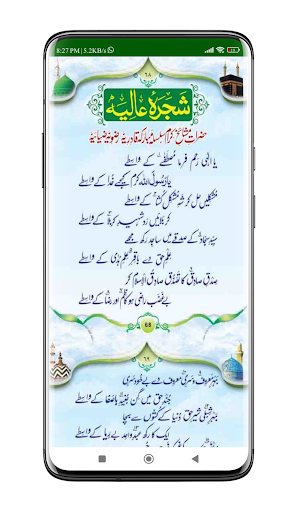 8:27 PM | 5.2KB/s
٦٨
شجرۂ عالیہ
حضرات مشائخ کرام سلسلہ مبارکہ قادریہ رضویہ ضیائیہ
یا الٰہی رحم فرما مصطفٰے کے واسطے
یا رسول اللہ کرم کیجئے خدا کے واسطے
مشکلیں حل کر شہِ مشکل کشا کے واسطے
کر بلائیں رد شہیدِ کربلا کے واسطے
سیدِ سجاد کے صدقے میں ساجد رکھ مجھے
علمِ حق دے باقرِ علمِ ہدیٰ کے واسطے
صدقِ صادق کا تصدق صادق الاسلام کر
بے غضب راضی ہو کاظم اور رضا کے واسطے
68
٦٩
بہرِ معروف و سری معروف دے بیخود سری
جندِ حق میں گن جنیدِ باصفا کے واسطے
بہرِ شبلی شیرِ حق دنیا کے کتوں سے بچا
ایک کا رکھ عبدِ واحد بے ریا کے واسطے